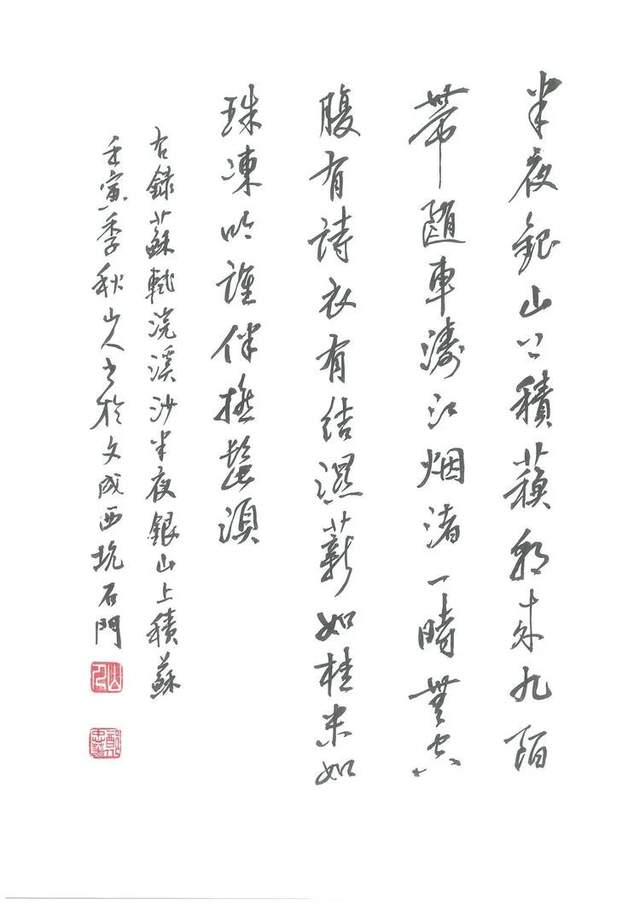 半夜銀山上積蘇朝来九陌
帶隨車濤江烟渚一時無空
腹有詩衣有結濕薪如桂米如
珠凍吟誰伴撚髭須
右録蘇軾浣溪沙半夜銀山上積蘇
壬寅季秋山人書於文成西坑石門
山人